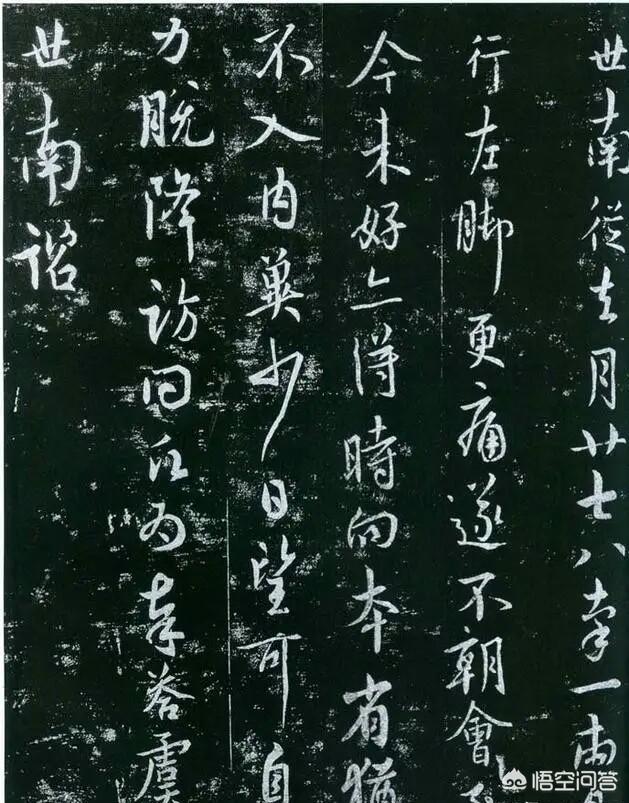 世南從去月廿七八率一兩
行左脚更痛遂不朝會
今未好亦得時向本省猶
不入内冀少日望可自
力脱降訪問為奉答虞
世南諮
悟空问答